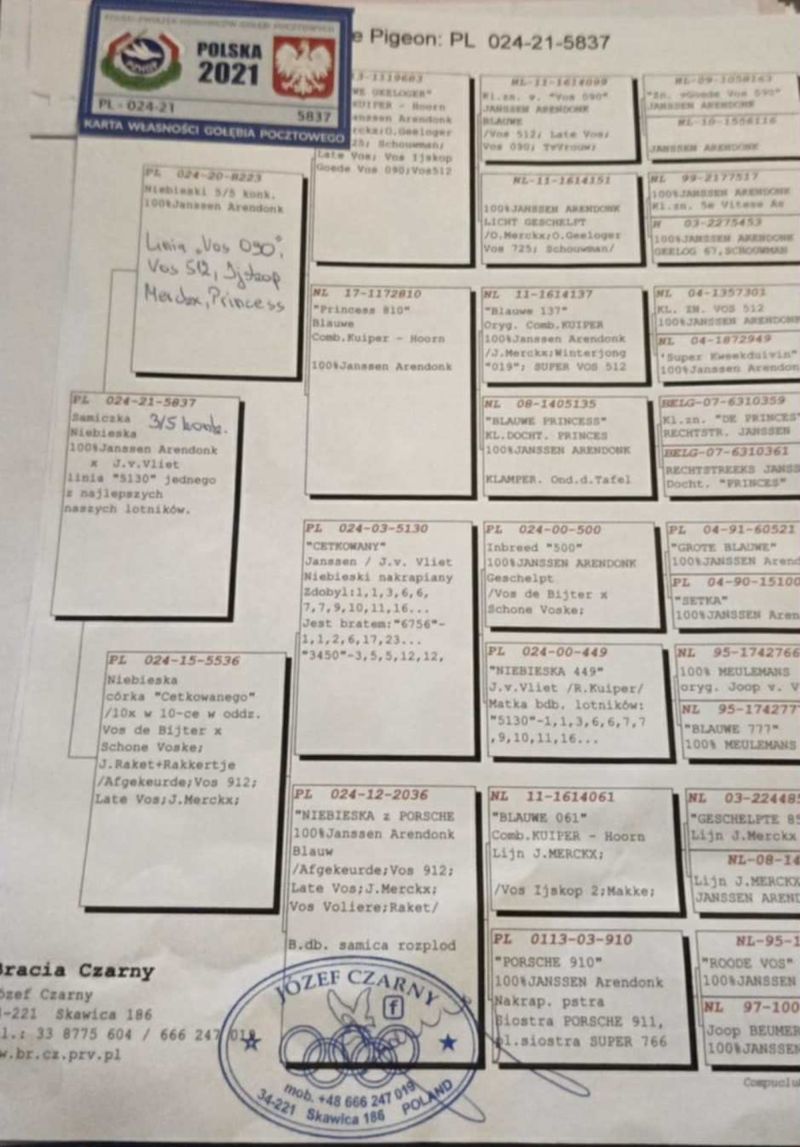 POLSKI ZWIĄZEK HODOWCÓW GOŁĘBI POCZTOWYCH
POLSKA
2021
PL - 024-21
5837
KARTA WŁASNOŚCI GOŁĘBIA POCZTOWEGO
e Pigeon: PL 024-21-5837
PL 024-21-5837
Samiczka 3/5 konk.
Niebieska
100%Janssen Arendonk
x J.v.Vliet
linia "5130" jednego
z najlepszych
naszych lotników.
PL 024-20-8223
Niebieski 5/5 konk.
100%Janssen Arendonk
Linia „Vos 090",
Vos 512, Ijskop
Merckx, Princess
PL 024-15-5536
Niebieska
córka "Cetkowanego"
/10x w 10-ce w oddz.
Vos de Bijter x
Schone Voske;
J.Raket+Rakkertje
/Afgekeurde;Vos 912;
Late Vos;J.Merckx;
3-1119683
WE GEELOGER"
KUIPER - Hoorn
anssen Arendonk
rckx;O.Geeloger
25; Schouwman/
Late Vos; Vos Ijskop
Goede Vos 090;Vos512
NL 17-1172810
"Princess 810"
Blauwe
Comb.Kuiper - Hoorn
100%Janssen Arendonk
PL 024-03-5130
"CETKOWANY"
Janssen / J.v. Vliet
Niebieski nakrapiany
Zdobył:1,1,3,6,6,
7,7,9,10,11,16...
Jest bratem:"6756"-
1,1,2,6,17,23...
"3450"-3,5,5,12,12,
PL 024-12-2036
"NIEBIESKA z PORSCHE
100%Janssen Arendonk
Blauw
/Afgekeurde;Vos 912;
Late Vos;J.Merckx;
Vos Voliere;Raket/
B.db. samica rozpłod
NL-11-1614099
Kl.zn. v. "Vos 090"
JANSSEN ARENDONK
BLAUWE
/Vos 512; Late Vos;
Vos 090; TeVrouw;
NL-11-1614151
100%JANSSEN ARENDONK
LICHT GESCHELPT
/O.Merckx;O.Geeloger
Vos 725; Schouwman/
NL 11-1614137
"Blauwe 137"
Oryg. Comb.KUIPER
100%Janssen Arendonk
/J.Merckx;Winterjong
"019"; SUPER VOS 512
NL 08-1405135
"BLAUWE PRINCESS"
KL.DOCHT. PRINCES
100%JANSSEN ARENDONK
KLAMPER. Ond.d.Tafel
PL 024-00-500
Inbreed "500"
100%JANSSEN ARENDONK
Geschelpt
/Vos de Bijter x
Schone Voske;
PL 024-00-449
"NIEBIESKA 449"
J.v.Vliet /R.Kuiper/
Matka bdb. lotników:
"5130"-1,1,3,6,6,7,7
,9,10,11,16...
NL 11-1614061
"BLAUWE 061"
Comb.KUIPER - Hoorn
Lijn J.MERCKX;
/Vos Ijskop 2;Makke;
PL 0113-03-910
"PORSCHE 910"
100%JANSSEN Arendonk
Nakrap. pstra
Siostra PORSCHE 911,
pl.siostra SUPER 766
NL-09-1058163
"Zn. vGoede Vos 090"
JANSSEN ARENDONK
NL-10-1556116
JANSSEN ARENDONK
NL 99-2177517
100%JANSSEN ARENDONK
Kl.zn. 5e Vitesse As
N 03-2275453
100%JANSSEN ARENDONK
GEELOG 67,SCHOUWMAN
NL 04-1357301
KL. ZN. VOS 512
100%JANSSEN ARENDONK
NL 04-1872949
'Super Kweekduivin"
100%Janssen Arendon
BELG-07-6310359
Kl.zn. "DE PRINCES"
RECHTSTR. JANSSEN
BELG-07-6310361
RECHTSTREEKS JANSS
Docht. "PRINCES"
PL 04-91-60521
"GROTE BLAUWE"
100%JANSSEN Arend
PL 04-90-15100
"SETKA"
100%JANSSEN Aren
NL 95-1742766
100% MEULEMANS
oryg. Joop v. V
NL 95-174277
"BLAUWE 777"
100% MEULEMANS
NL 03-224485
"GESCHELPTE 85
Lijn J.Merckx
NL-08-14
Lijn J.MERCKX
JANSSEN AREND
NL-95-1
"ROODE VOS"
100%JANSSEN
NL 97-100
Joop BEUMER
100%JANSSEN
Bracia Czarny
Józef Czarny
4-221 Skawica 186
l.: 33 8775 604 / 666 247 019
w.br.cz.prv.pl
JÓZEF CZARNY
f
mob. +48 666 247 019
34-221 Skawica 186 POLAND
Compuclu